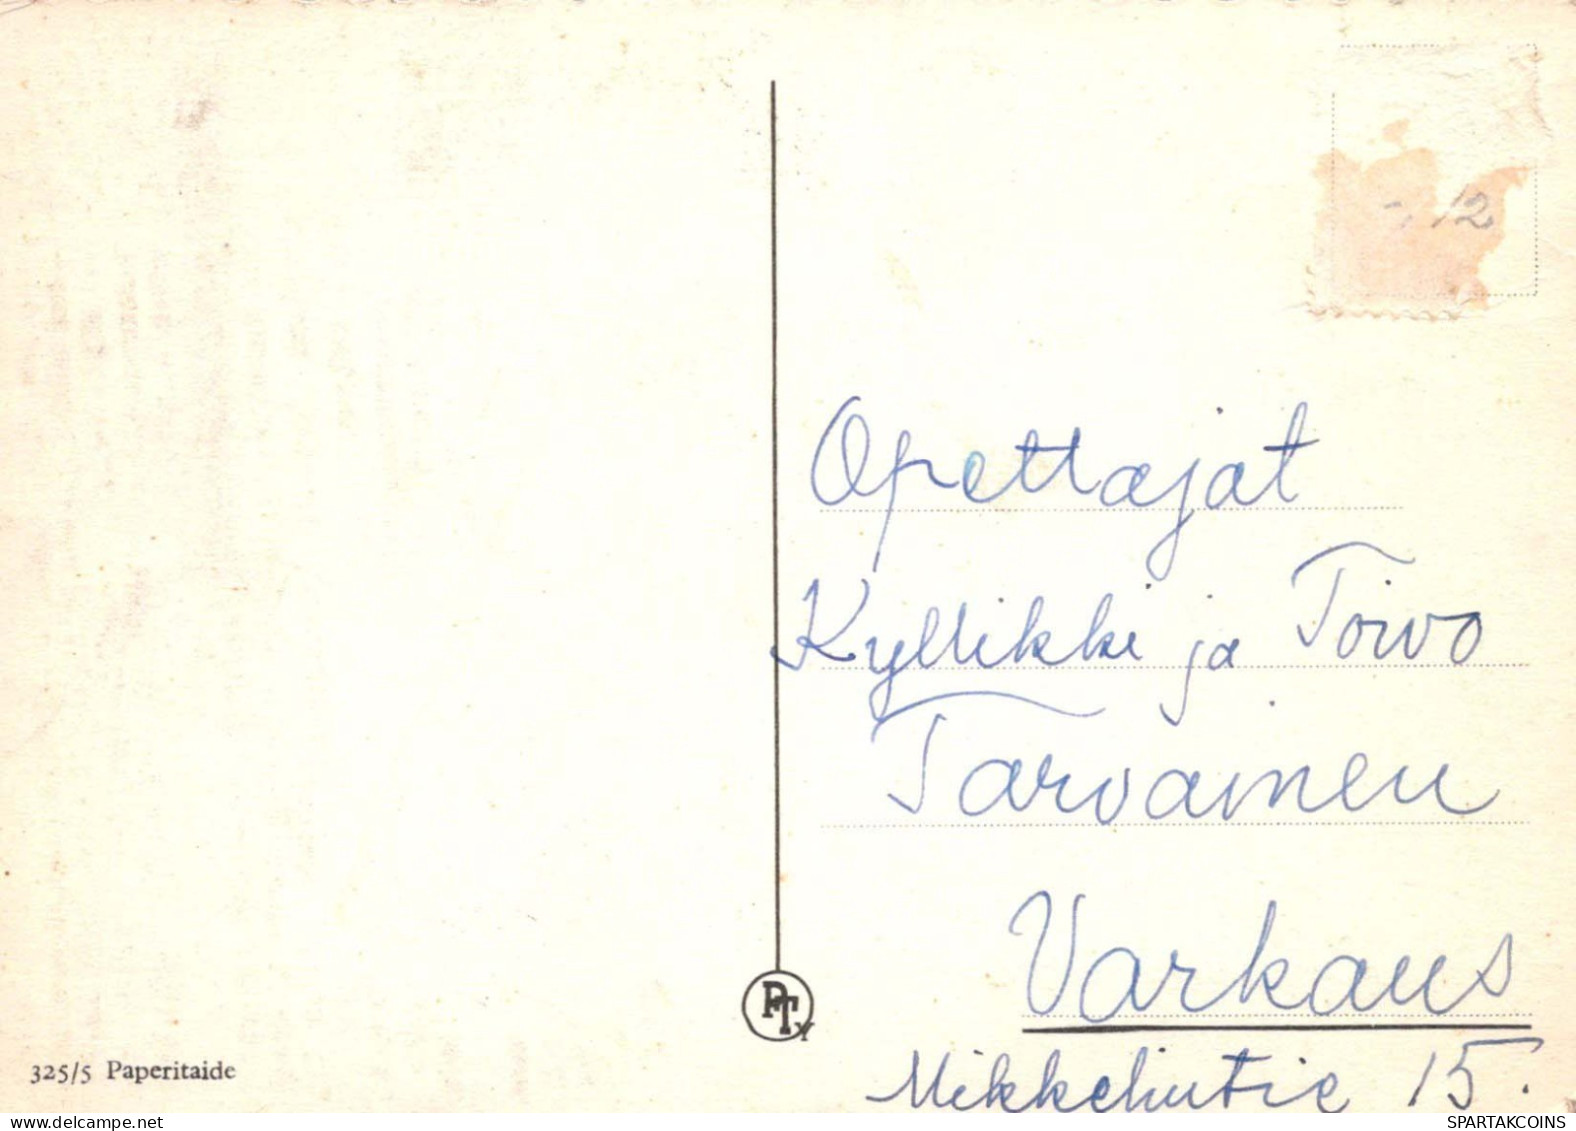 12
Opettajat
Kyllikki ja Toivo
Tarvainen
Varkaus
Mikkelintie 15.
PTY
325/5 Paperitaide
https://www.delcampe.net
SPARTAKCOINS